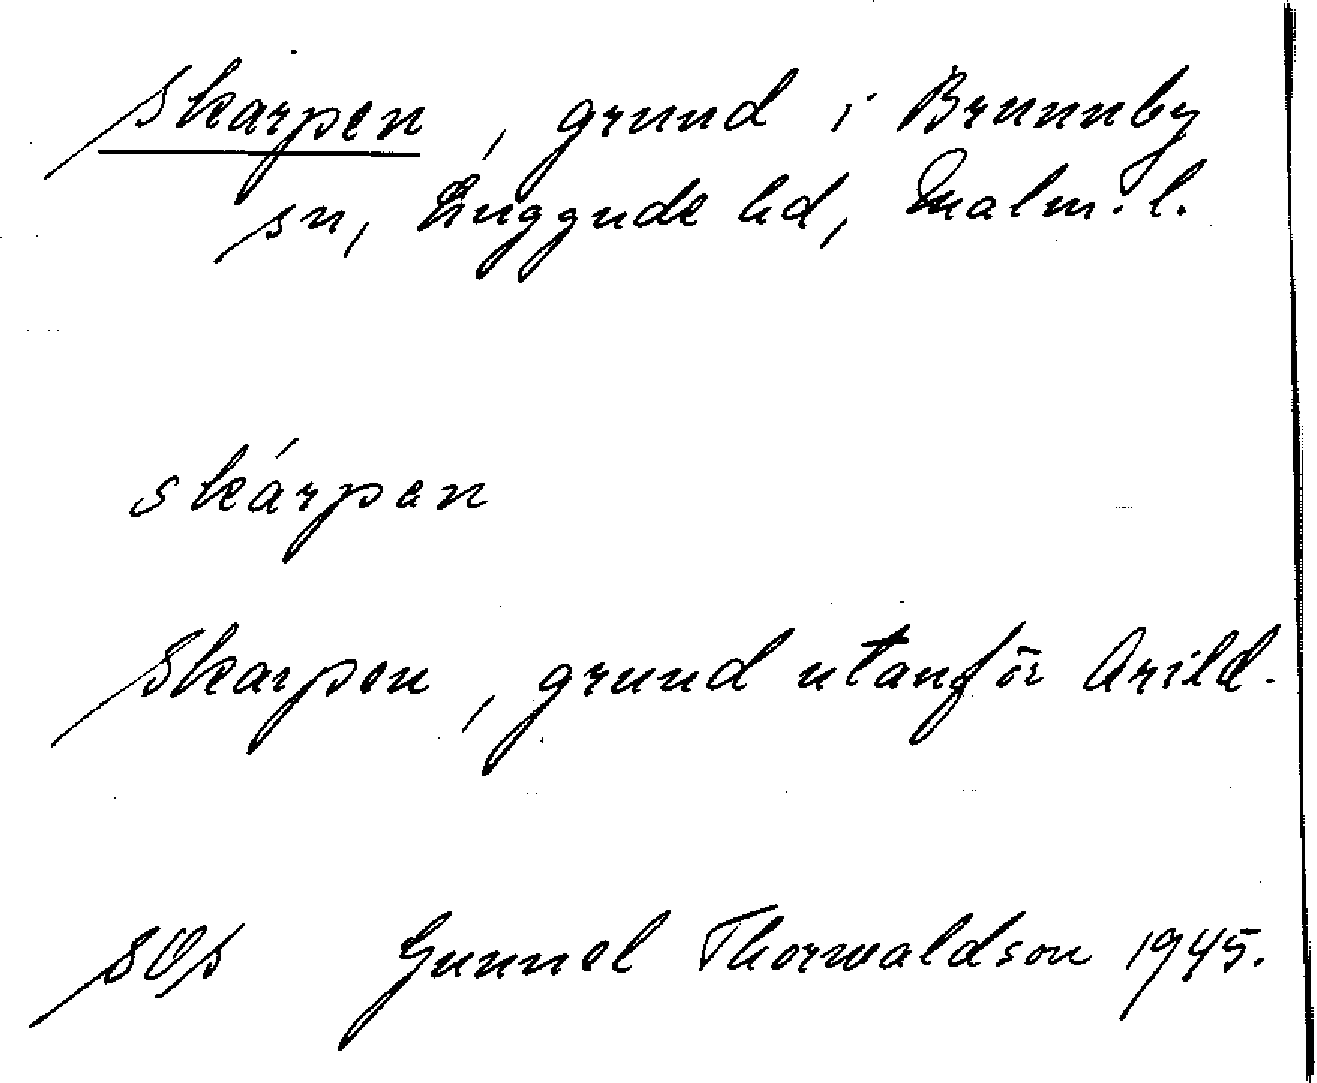 Skarpen, grund i Brunnby
sn, Luggude hd, Malm. l.
skárpan
Skarpen, grund utanför Arild.
SOS Gunnel Thorwaldson 1945.